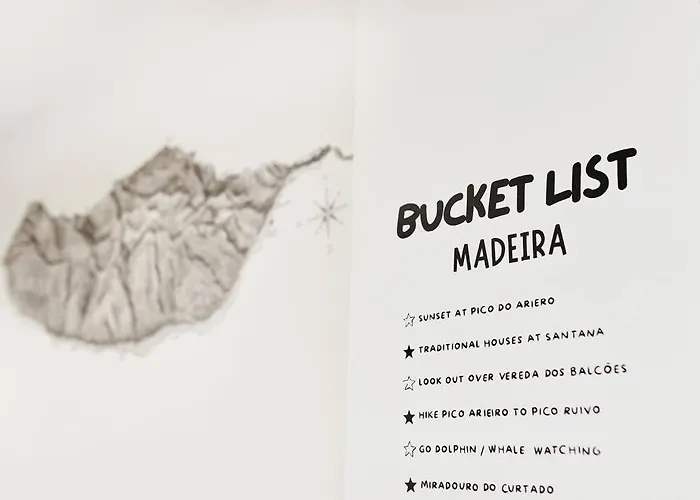 BUCKET LIST
MADEIRA
☆ SUNSET AT PICO DO ARIERO
★ TRADITIONAL HOUSES AT SANTANA
☆ LOOK OUT OVER VEREDA DOS BALCÕES
★ HIKE PICO ARIEIRO TO PICO RUIVO
☆ GO DOLPHIN / WHALE WATCHING
★ MIRADOURO DO CURTADO